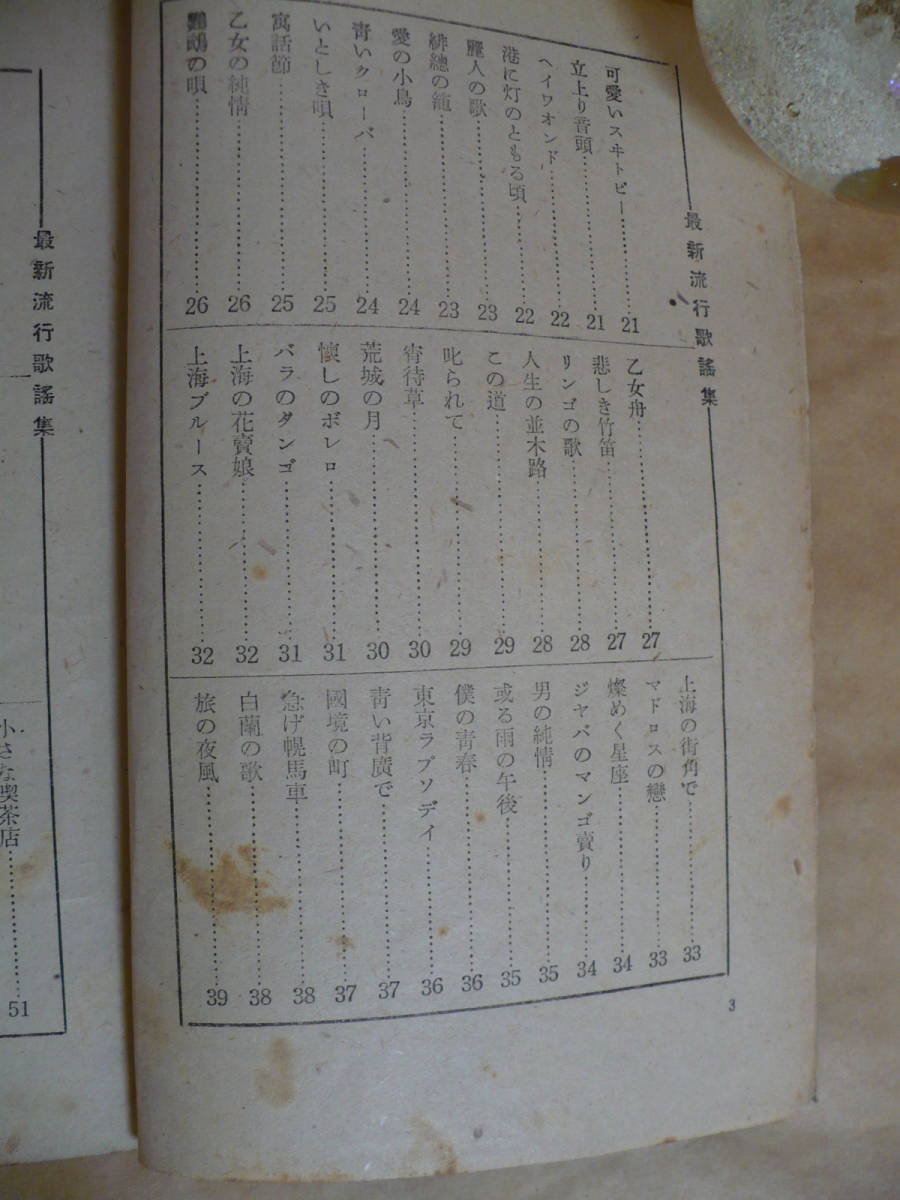 最新流行歌謠集
可愛いスヰトピー……21
立上り音頭……21
ヘイワオンド……22
港に灯のともる頃……22
麗人の歌……23
緋總の籠……23
愛の小鳥……24
青いクローバ……24
いとしき唄……25
寓話節……25
乙女の純情……26
鸚鵡の唄……26
乙女舟……27
悲しき竹笛……27
リンゴの歌……28
人生の並木路……28
この道……29
叱られて……29
宵待草……30
荒城の月……30
懐しのボレロ……31
バラのタンゴ……31
上海の花賣娘……32
上海ブルース……32
上海の街角で……33
マドロスの戀……33
燦めく星座……34
ジヤバのマンゴ賣り……34
男の純情……35
或る雨の午後……35
僕の青春……36
東京ラプソデイ……36
青い背廣で……37
國境の町……37
急げ幌馬車……38
白蘭の歌……38
旅の夜風……39
3
最新流行歌謠集
小さな喫茶店……51